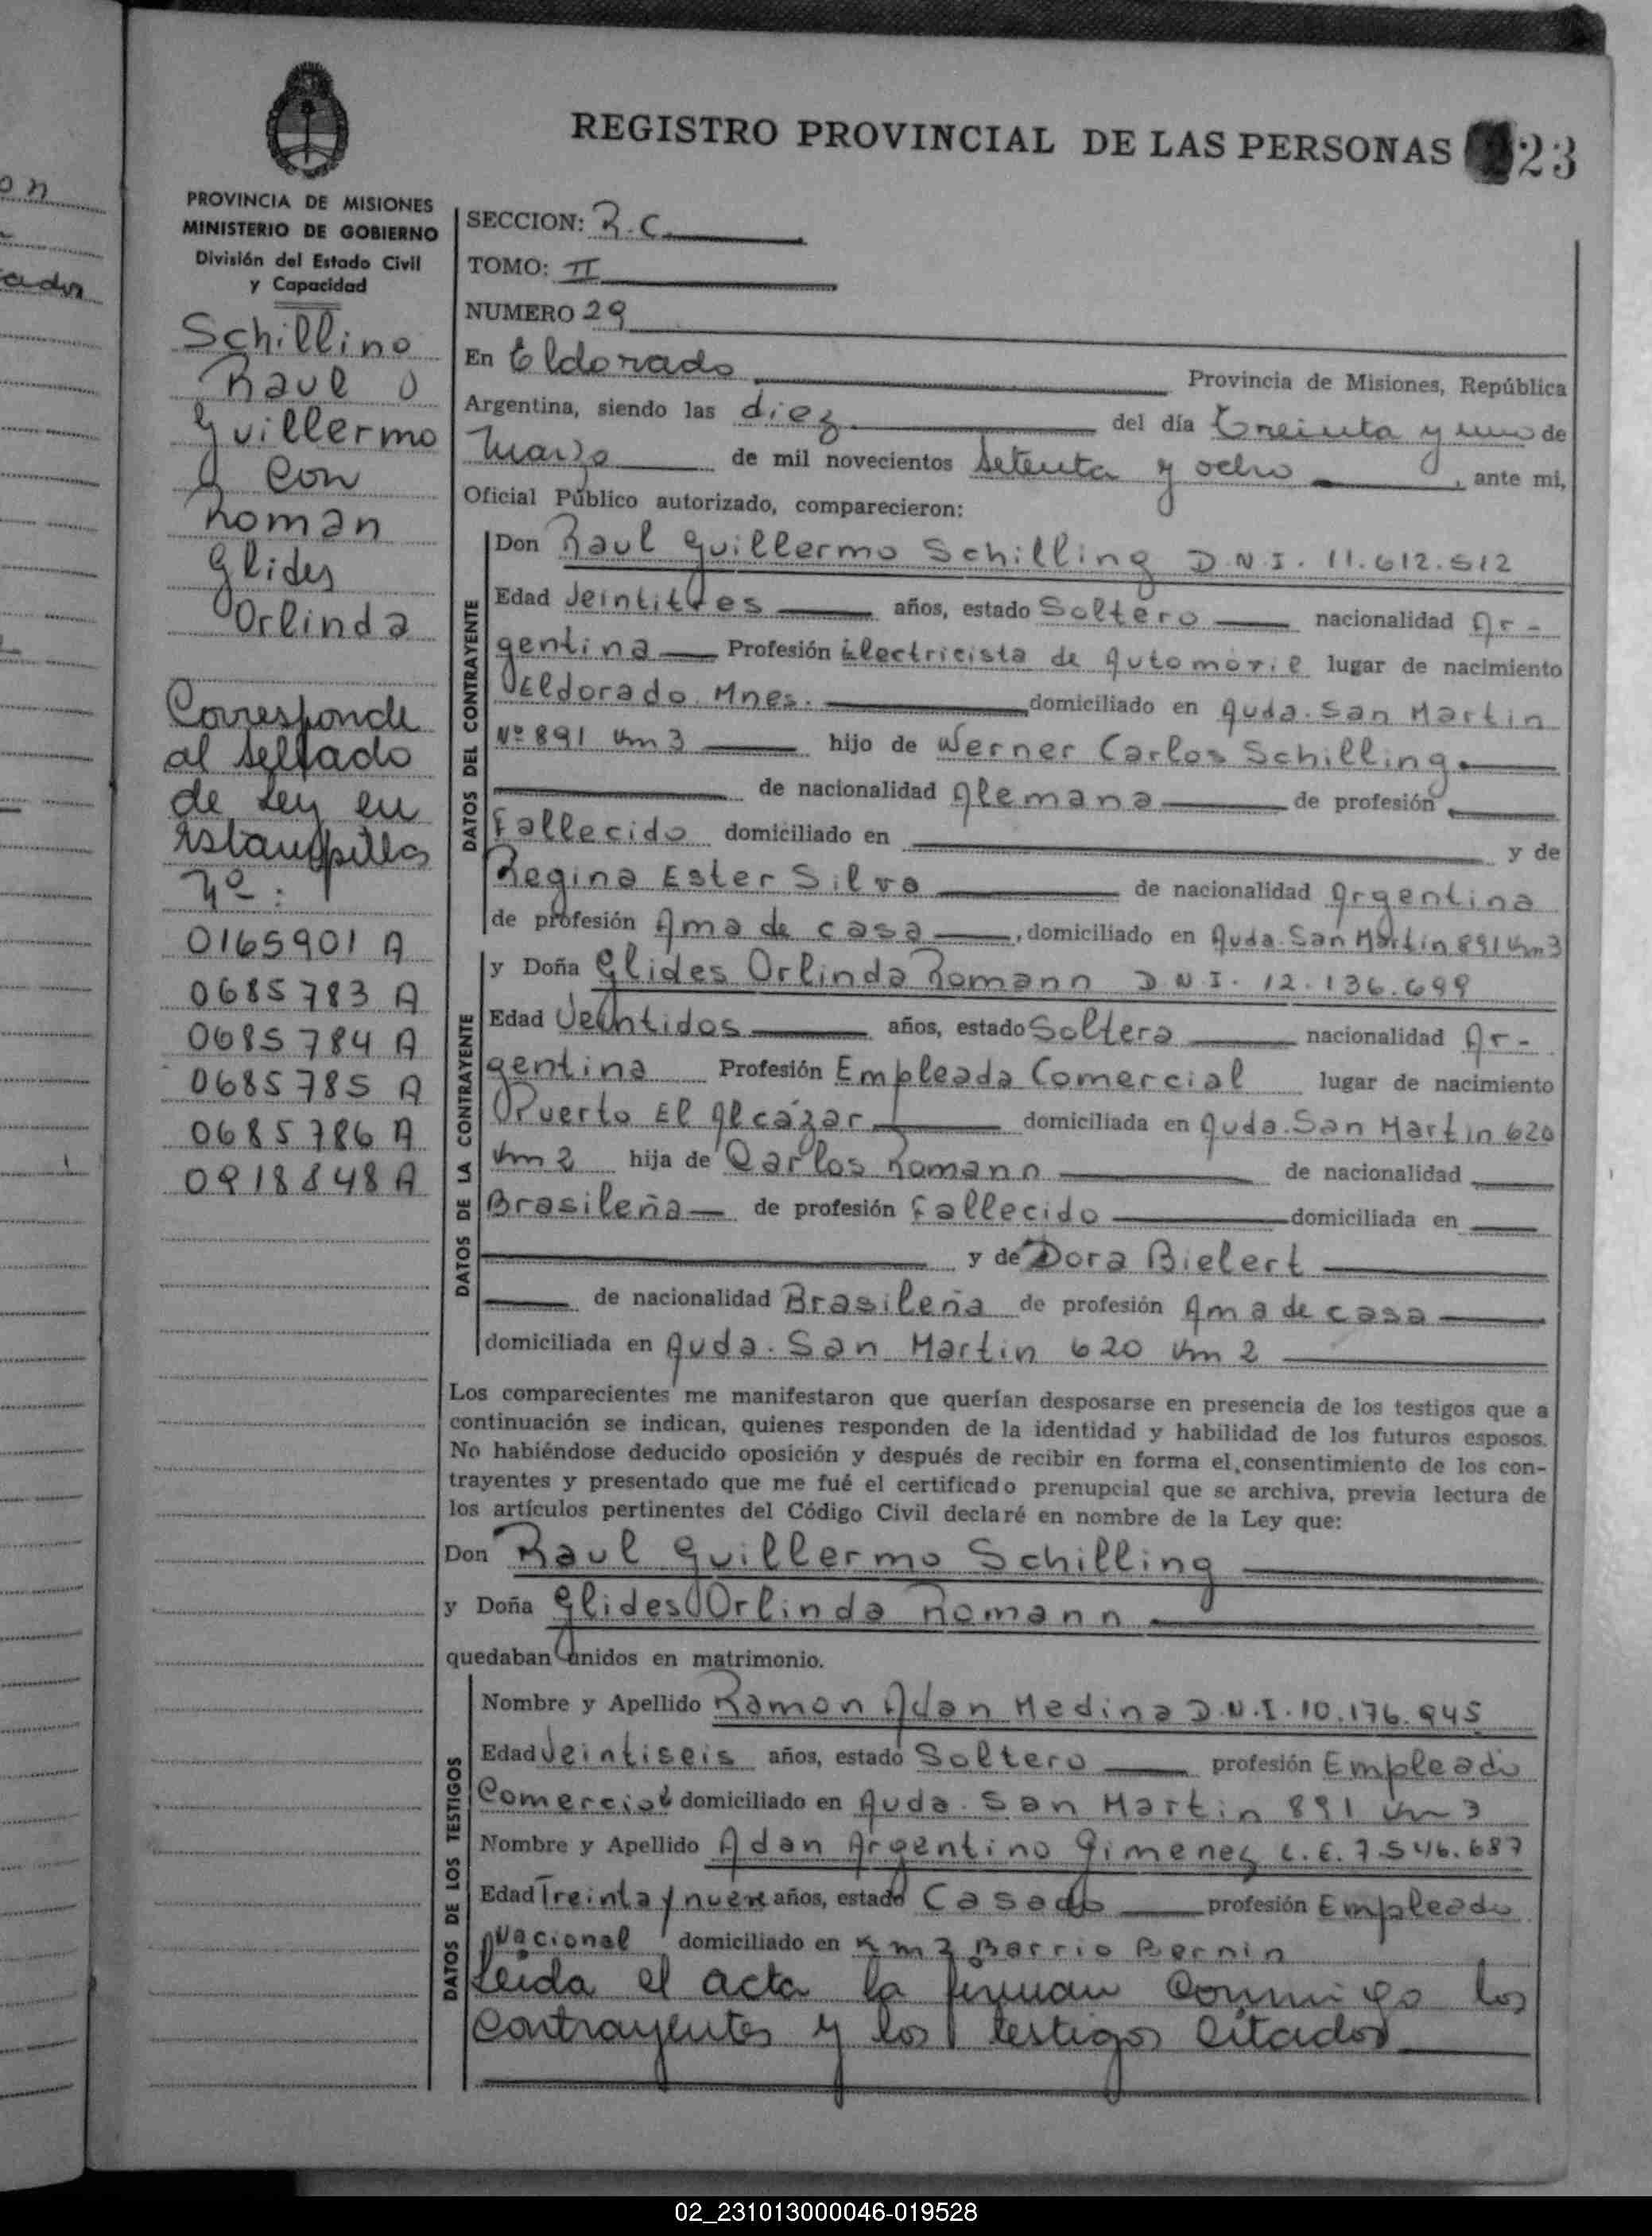 on
ados
REGISTRO PROVINCIAL DE LAS PERSONAS 23
PROVINCIA DE MISIONES
MINISTERIO DE GOBIERNO
División del Estado Civil
y Capacidad
Schilling
Raul
Guillermo
con
Roman
Glides
Orlinda
Corresponde
al sellado
de Ley en
Estampillas
Nº:
0165901 A
0685783 A
0685784 A
0685785 A
0685786 A
0918848 A
SECCION: R.C.
TOMO: II
NUMERO 29
En Eldorado Provincia de Misiones, República
Argentina, siendo las diez del día treinta y uno de
Marzo de mil novecientos setenta y ocho, ante mi,
Oficial Público autorizado, comparecieron:
DATOS DEL CONTRAYENTE
Don Raul Guillermo Schilling D.N.I. 11.612.512
Edad Veintitres años, estado Soltero nacionalidad Ar-
gentina Profesión Electricista de Automovil lugar de nacimiento
Eldorado Mnes. domiciliado en Avda. San Martin
Nº 891 Km 3 hijo de Werner Carlos Schilling.
de nacionalidad Alemana de profesión
Fallecido domiciliado en y de
Regina Ester Silva de nacionalidad Argentina
de profesión Ama de casa, domiciliado en Avda. San Martin 891 Km 3
DATOS DE LA CONTRAYENTE
y Doña Glides Orlinda Romann D.N.I. 12.136.699
Edad Veintidos años, estado Soltera nacionalidad Ar-
gentina Profesión Empleada Comercial lugar de nacimiento
Puerto El Alcázar domiciliada en Avda. San Martin 620
Km 2 hija de Carlos Romann de nacionalidad
Brasileña de profesión Fallecido domiciliada en
y de Dora Bielert
de nacionalidad Brasileña de profesión Ama de casa
domiciliada en Avda. San Martin 620 Km 2
Los comparecientes me manifestaron que querían desposarse en presencia de los testigos que a
continuación se indican, quienes responden de la identidad y habilidad de los futuros esposos.
No habiéndose deducido oposición y después de recibir en forma el consentimiento de los con-
trayentes y presentado que me fué el certificado prenupcial que se archiva, previa lectura de
los artículos pertinentes del Código Civil declaré en nombre de la Ley que:
Don Raul Guillermo Schilling
y Doña Glides Orlinda Romann
quedaban unidos en matrimonio.
DATOS DE LOS TESTIGOS
Nombre y Apellido Ramon Adan Medina D.N.I. 10.176.945
Edad Veintiseis años, estado Soltero profesión Empleado
Comercial domiciliado en Avda. San Martin 891 Km 3
Nombre y Apellido Adan Argentino Gimenez L.E. 7.546.687
Edad Treinta y nueve años, estado Casado profesión Empleado
Nacional domiciliado en Km 3 Barrio Bernin
Leida el acta la firman conmigo los
contrayentes y los testigos citados
02_231013000046-019528